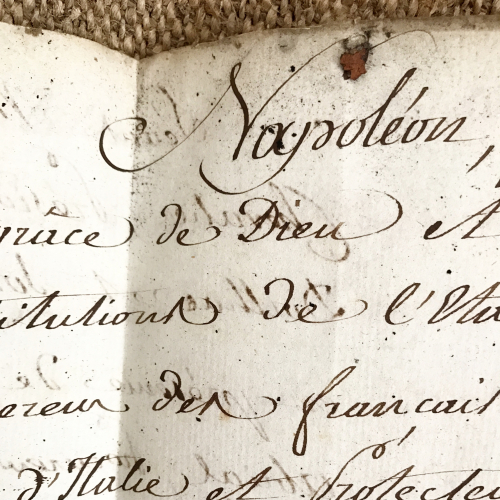 Napoléon,
grâce de Dieu et
titutions de l'Eta
ereur des français
d'Italie et Protecte